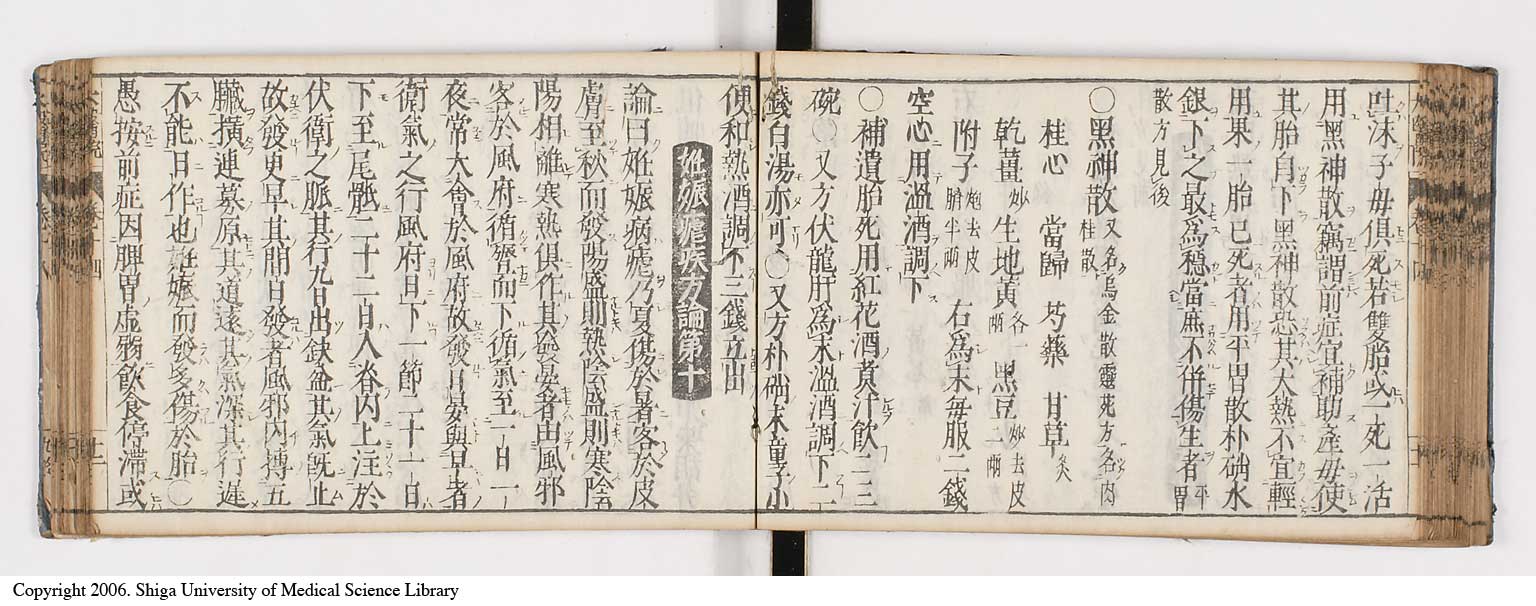 吐沫子母俱死若雙胎或一死一活
用黑神散竊謂前症宜補助產母使
其胎自下黑神散恐其大熱不宜輕
用果一胎已死者用平胃散朴硝水
銀下之最爲穩當庶不併傷生者平胃
散方見後
〇黑神散又名烏金散靈苑方名肉桂散
桂心 當歸 芍藥 甘草炙
乾薑炒 生地黃各一兩 黑豆炒去皮二兩
附子炮去皮臍半兩 右爲末每服二錢
空心用溫酒調下
〇補遺胎死用紅花酒煑汁飲二三
碗〇又方伏龍肝爲末溫酒調下二
錢白湯亦可〇又方朴硝末童子小
便和熱酒調下三錢立出
姙娠瘧疾方論第十
論曰姙娠病瘧乃夏傷於暑客於皮
膚至秋而發陽盛則熱陰盛則寒陰
陽相離寒熱俱作其發晏者由風邪
客於風府循膂而下衛氣至一日一
夜常大會於風府故發日晏與早者
衛氣之行風府日下一節二十一日
下至尾骶二十二日入脊內上注於
伏衛之脈其行九日出缺盆其氣旣止
故發更早其間日發者風邪內搏五
臟橫連募原其道遠其氣深其行遲
不能日作也姙娠而發多傷於胎〇
愚按前症因脾胃虛弱飲食停滯或
Copyright 2006. Shiga University of Medical Science Library